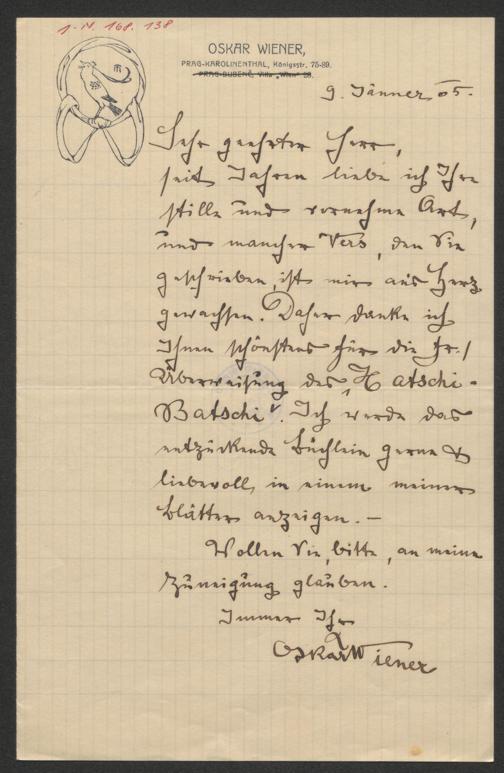 1-N. 168.138
OSKAR WIENER,
PRAG-KAROLINENTHAL, Königsstr. 75-89.
PRAG-BUBENČ, Villa „Wien“ 28.
9. Jänner 05.
Sehr geehrter Herr,
seit Jahren liebe ich Ihre
stille und vornehme Art,
und mancher Vers, den Sie
geschrieben, ist mir ans Herz
gewachsen. Daher danke ich
Ihnen schönstens für die fr./
Überweisung des „Hatschi-
Batschi“. Ich werde das
entzückende Büchlein gerne &
liebevoll, in einem meiner
Blätter anzeigen. —
Wollen Sie, bitte, an meine
Zuneigung glauben.
Immer Ihr
Oskar Wiener